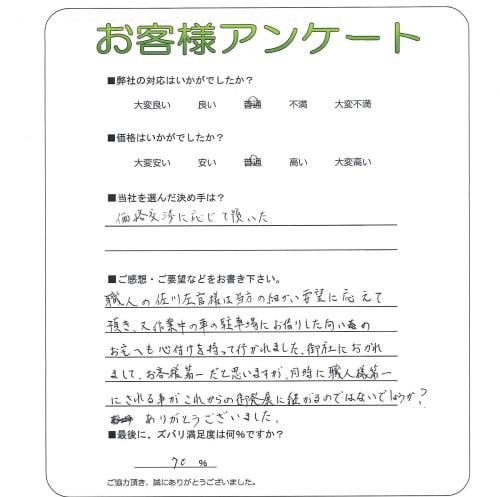 お客様アンケート
■弊社の対応はいかがでしたか？
大変良い 良い 普通 不満 大変不満
■価格はいかがでしたか？
大変安い 安い 普通 高い 大変高い
■当社を選んだ決め手は？
価格交渉に応じて頂いた
■ご感想・ご要望などをお書き下さい。
職人の佐川左官様は当方の細かい要望に応えて
頂き、又作業中の車の駐車場にお借りした向い姦の
お宅へも心付けを持って行かれました。御社におかれ
まして、お客様第一だと思いますが、同時に職人様第一
にされる事がこれからの御発展に継がるのではないでしょうか？
ありがとうございました。
■最後に、ズバリ満足度は何％ですか？
70 ％
ご協力頂き、誠にありがとうございました。